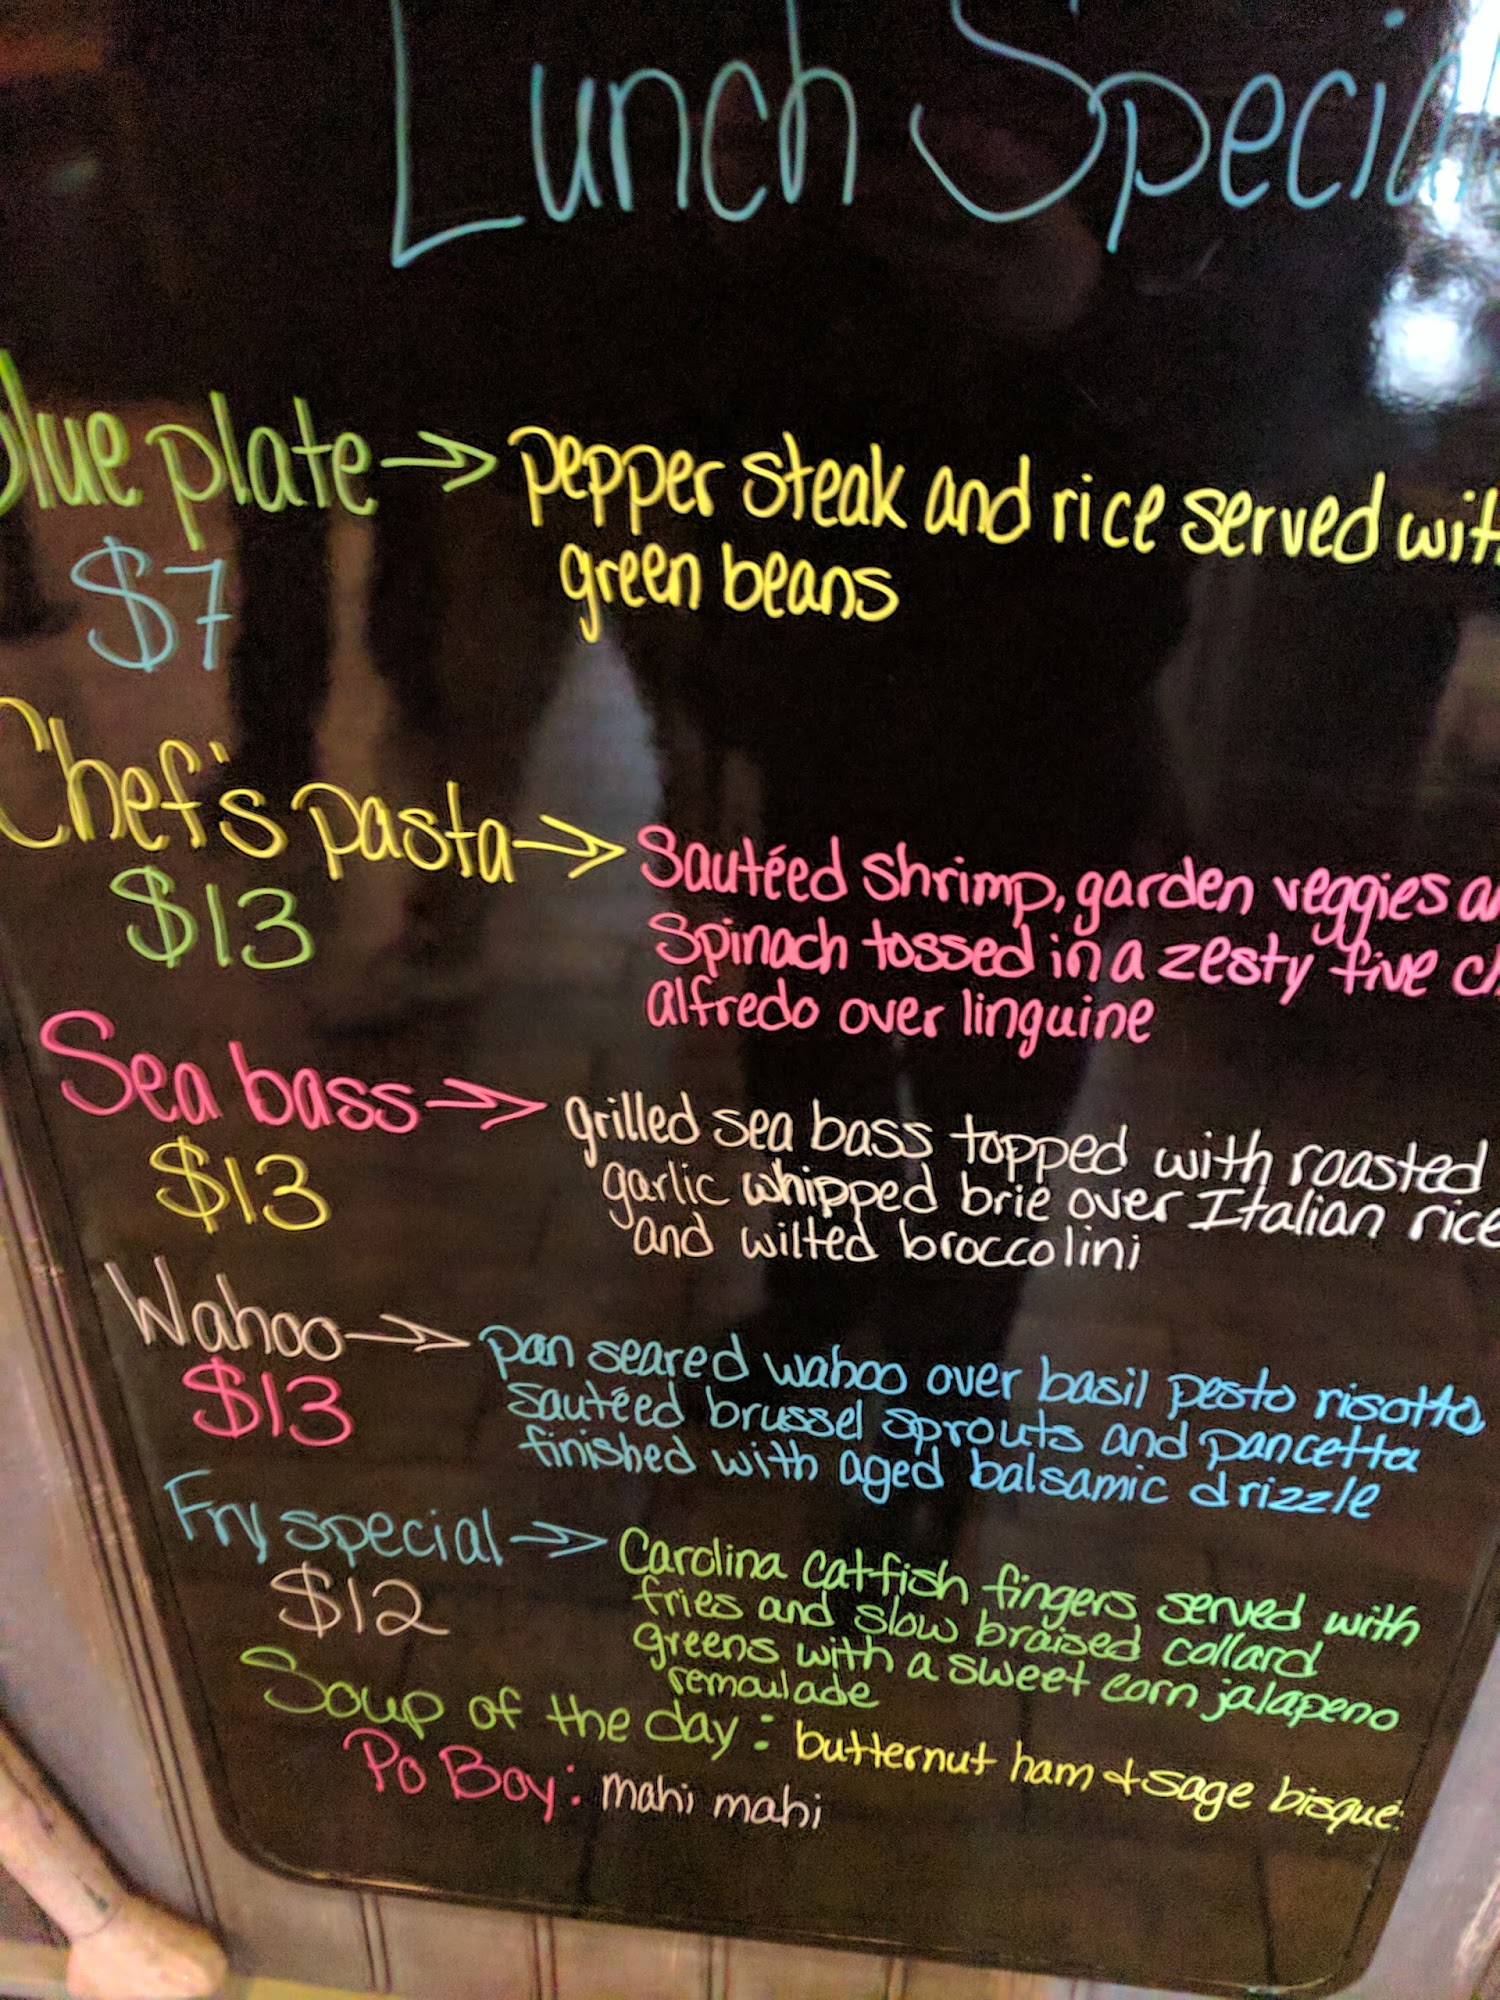 Lunch Special
lue plate → pepper steak and rice served wit
$7 green beans
Chef's pasta → Sautéed shrimp, garden veggies an
$13 Spinach tossed in a zesty five ch
alfredo over linguine
Sea bass → grilled sea bass topped with roasted
$13 garlic whipped brie over Italian rice
and wilted broccolini
Wahoo → pan seared wahoo over basil pesto risotto,
$13 sautéed brussel sprouts and pancetta
finished with aged balsamic drizzle
Fry special → Carolina Catfish fingers served with
$12 fries and slow braised collard
greens with a sweet corn jalapeno
remoulade
Soup of the day: butternut ham + sage bisque.
Po Boy: mahi mahi